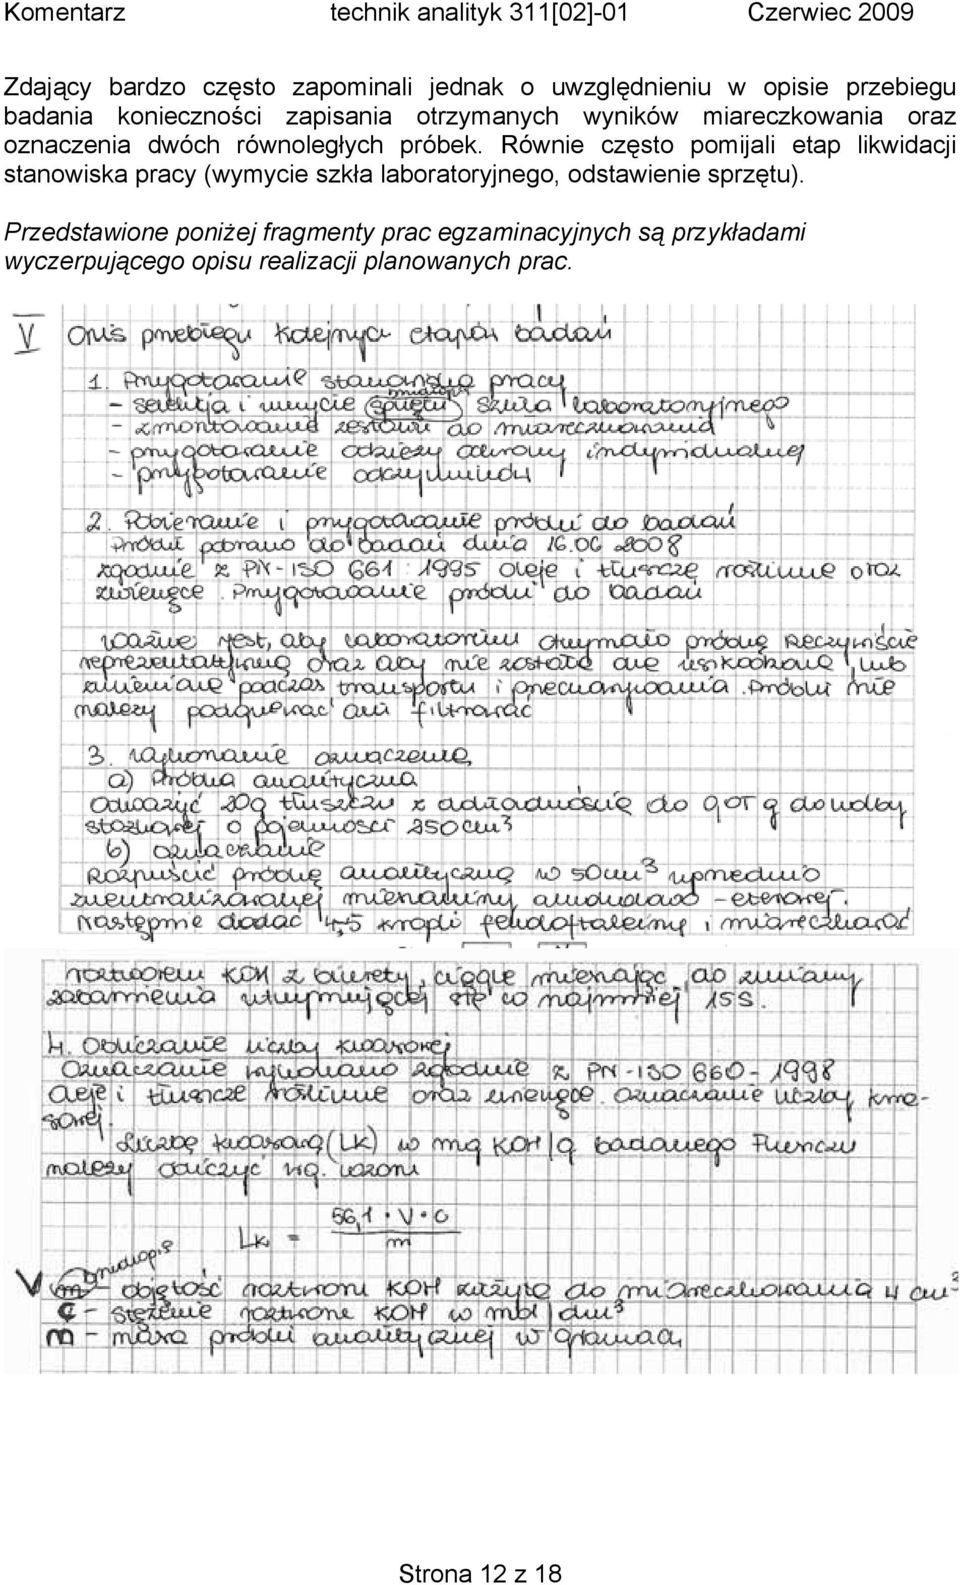 Komentarz technik analityk 311[02]-01 Czerwiec 2009
Zdający bardzo często zapominali jednak o uwzględnieniu w opisie przebiegu
badania konieczności zapisania otrzymanych wyników miareczkowania oraz
oznaczenia dwóch równoległych próbek. Równie często pomijali etap likwidacji
stanowiska pracy (wymycie szkła laboratoryjnego, odstawienie sprzętu).
Przedstawione poniżej fragmenty prac egzaminacyjnych są przykładami
wyczerpującego opisu realizacji planowanych prac.
V Opis przebiegu kolejnych etapów badań
1. Przygotowanie stanowiska pracy
brudnopis
- selekcja i umycie (sprzętu) szkła laboratoryjnego
- zmontowanie zestawu do miareczkowania
- przygotowanie odzieży ochrony indywidualnej
- przygotowanie odczynników
2. Pobieranie i przygotowanie próbki do badań
Próbki pobrano do badań dnia 16.06 2008
zgodnie z PN-ISO 661 : 1995 oleje i tłuszcze roślinne oraz
zwierzęce. Przygotowanie próbki do badań
Ważne jest, aby laboratorium otrzymało próbkę rzeczywiście
reprezentatywną oraz aby nie została one uszkodzone lub
zmieniane podczas transportu i przechowywania. Próbki nie
należy podgrzewać ani filtrować
3. Wykonanie oznaczenia
a) Próbka analityczna
Odważyć 20g tłuszczu z dokładnością do 0,01 g do kolby
stożkowej o pojemności 250cm³
b) oznaczanie
Rozpuścić próbkę analityczną w 50cm³ uprzednio
zneutralizowanej mieszaniny alkoholowo-eterowej.
Następnie dodać 4,5 kropli fenoloftaleiny i miareczkować
roztworem KOH z biurety, ciągle mieszając, do zmiany
zabarwienia utrzymującej się co najmniej 15s.
4. Obliczanie liczby kwasowej
Oznaczanie wykonano zgodnie z PN-ISO 660-1998
Oleje i tłuszcze roślinne oraz zwierzęce. Oznaczanie liczby kwa-
sowej.
Liczbę kwasową (LK) w mg KOH/g badanego tłuszczu
należy obliczyć wg. wzoru
Lk = 56,1 • V • c / m
brudnopis
V (m) - objętość roztworu KOH zużyta do miareczkowania w cm³
c - stężenie roztworu KOH w mol/dm³
m - masa próbki analitycznej w gramach
Strona 12 z 18